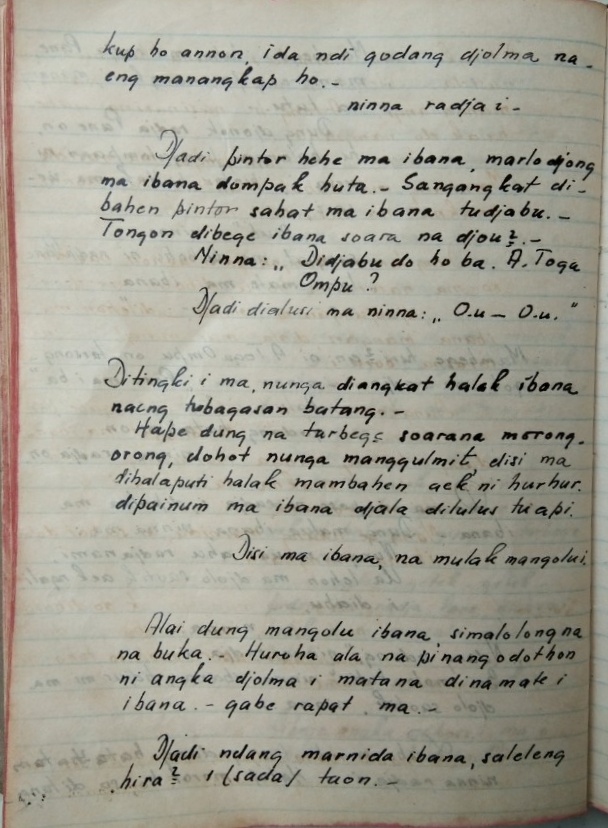 kup ho annon, ida ndi godang djolma na-
eng manangkap ho.-
ninna radja i-
Djadi pintor hehe ma ibana, marlodjong
ma ibana dompak huta.- Sangangkat di-
bahen pintor sahat ma ibana tudjabu.-
Tongon dibege ibana soara na djou².-
Ninna: „ Didjabu do ho ba. A. Toga
Ompu ?
Djadi dialusi ma ninna: „ O.u — O.u. "
Ditingki i ma, nunga diangkat halak ibana
naeng tubagasan batang.-
Hape dung na turbege soarana morong-
orong, dohot nunga manggulmit, disi ma
dihalaputi halak mambahen aek ni hurhur.
dipainum ma ibana djala dilulus tu api.
Disi ma ibana, na mulak mangolu i.
Alai dung mangolu ibana, simalolongna
na buka.- Huroha ala na pinangodothon
ni angka djolma i matana dinamate i
ibana.- gabe rapat ma.-
Djadi ndang marnida ibana, saleleng
hira² 1 (sada) taon.-